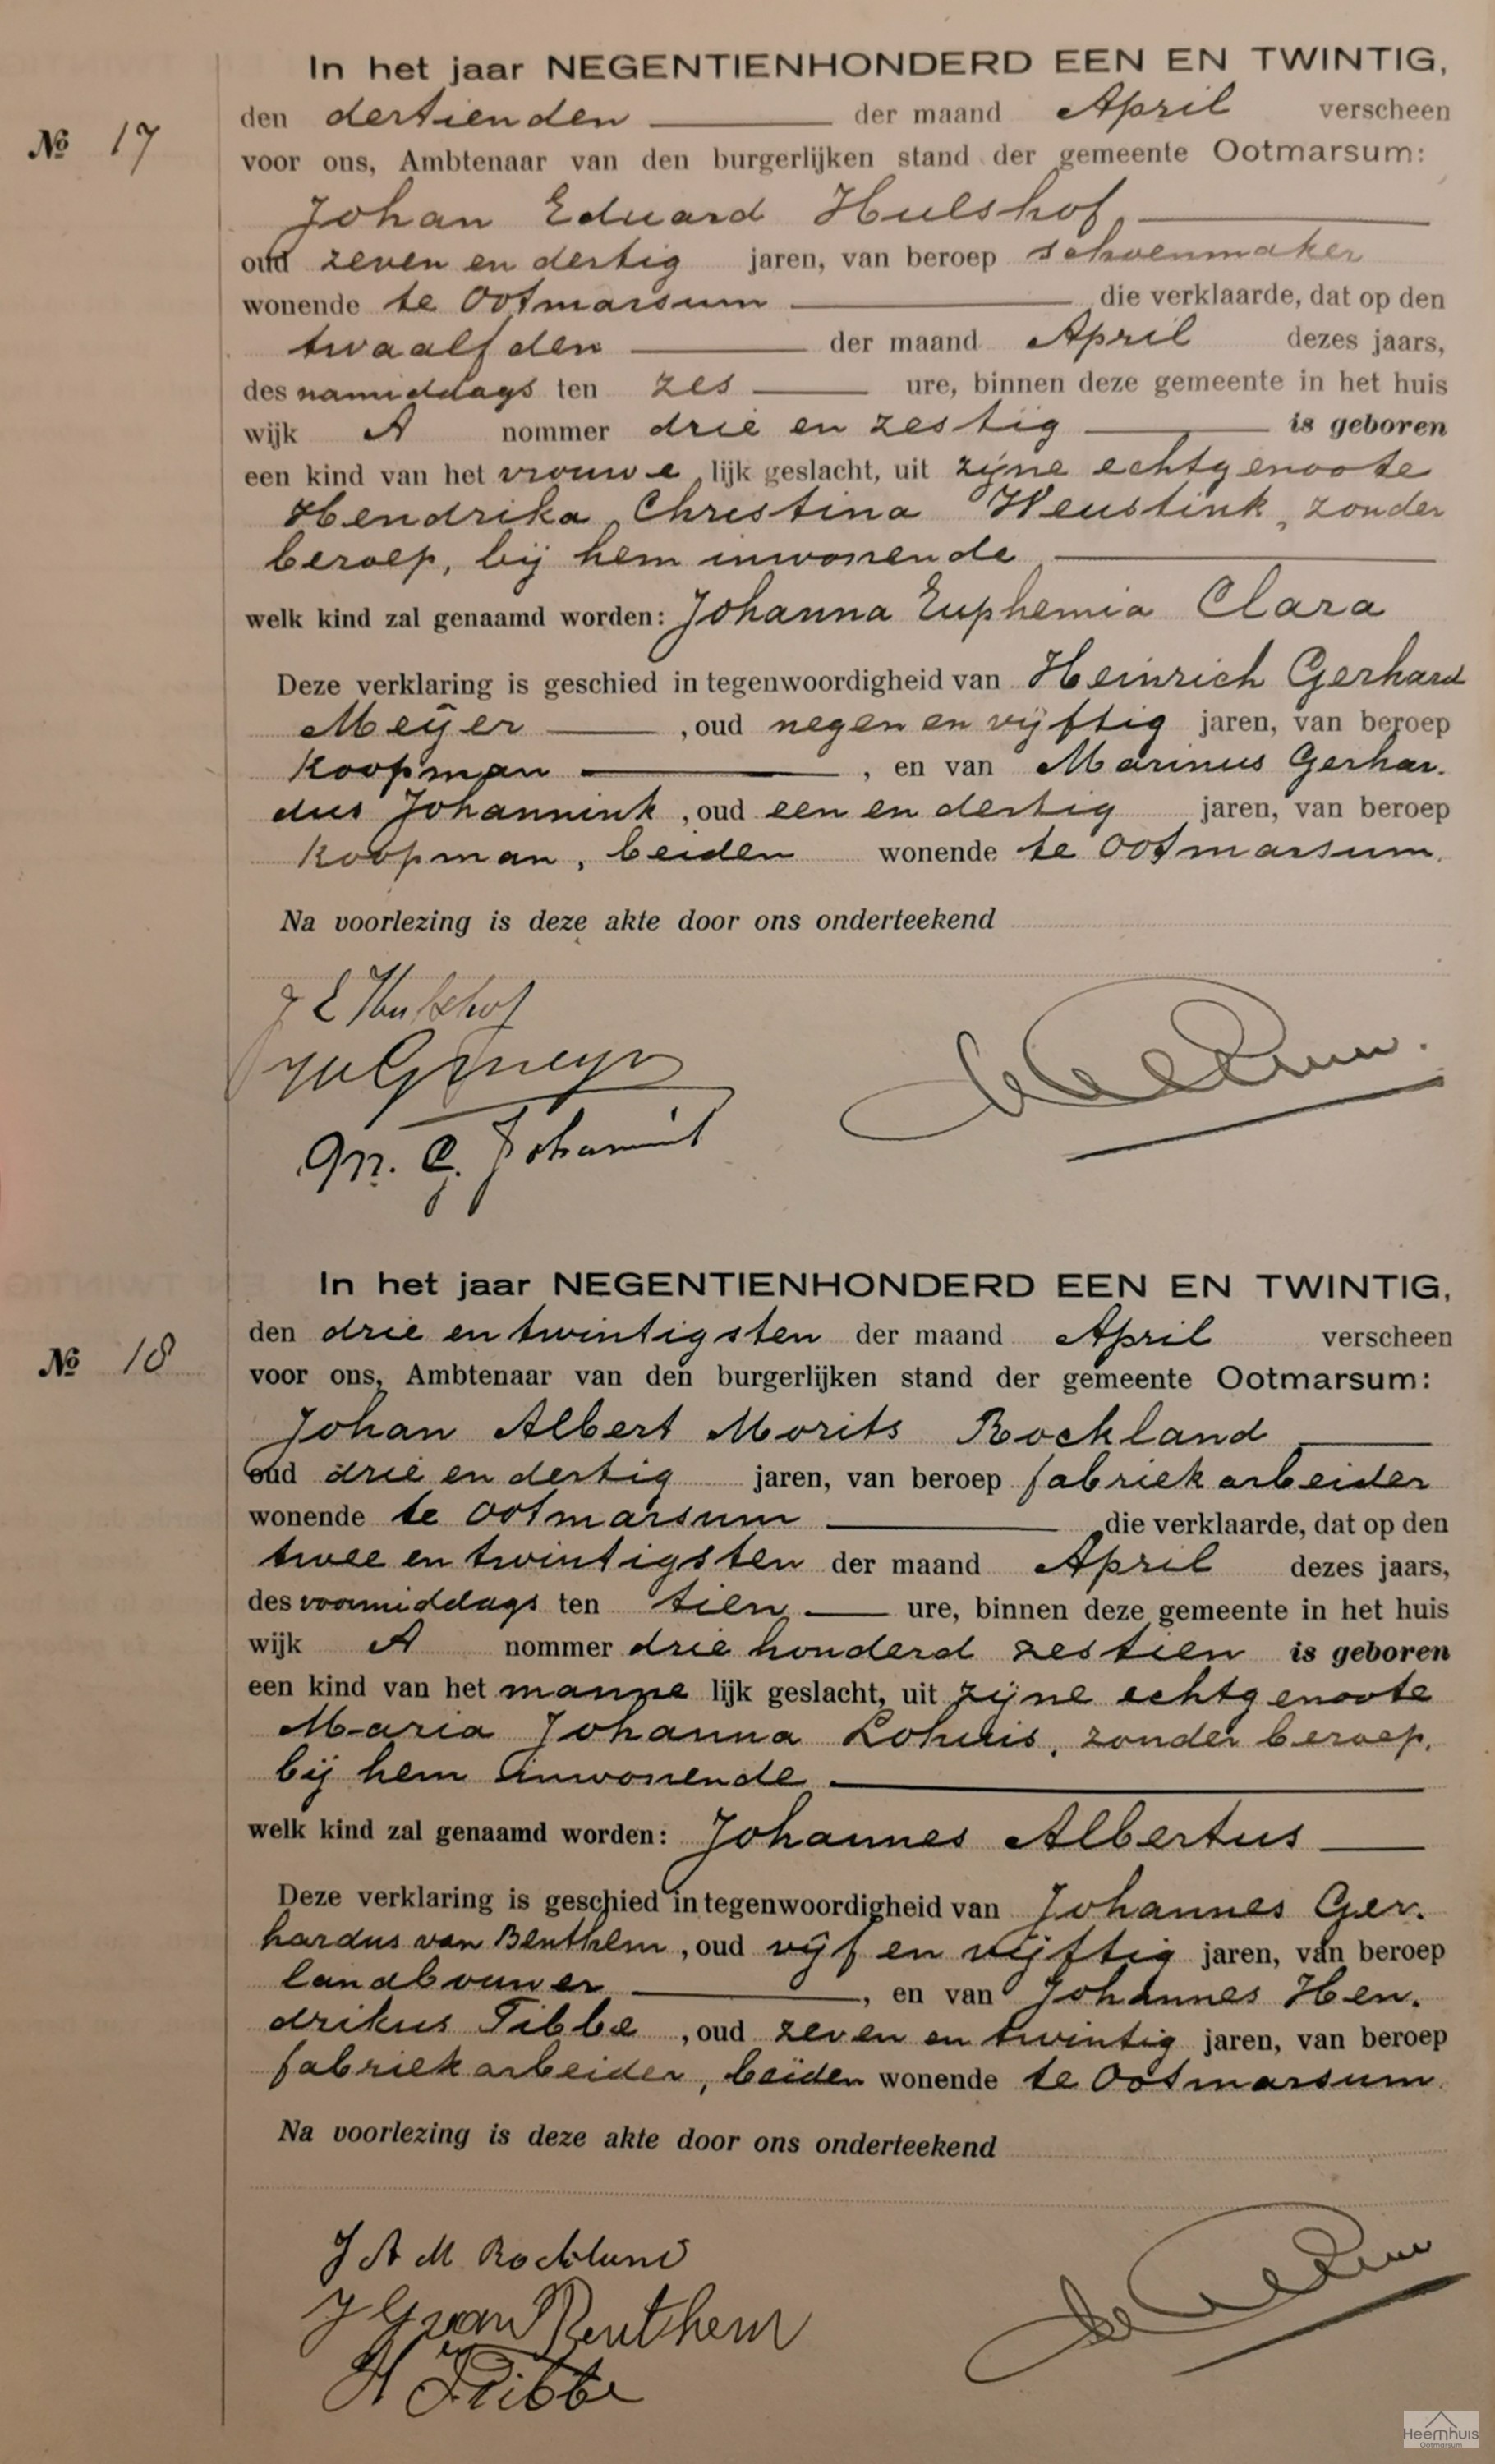 In het jaar NEGENTIENHONDERD EEN EN TWINTIG,
den dertienden der maand April verscheen
№ 17
voor ons, Ambtenaar van den burgerlijken stand der gemeente Ootmarsum:
Johan Eduard Hulshof,
oud zeven en dertig jaren, van beroep schoenmaker
wonende te Ootmarsum die verklaarde, dat op den
twaalfden der maand April dezes jaars,
des namiddags ten zes ure, binnen deze gemeente in het huis
wijk A nommer drie en zestig is geboren
een kind van het vrouwe lijk geslacht, uit zijne echtgenoote
Hendrika Christina Weustink, zonder
beroep, bij hem inwonende
welk kind zal genaamd worden: Johanna Euphemia Clara
Deze verklaring is geschied in tegenwoordigheid van Heinrich Gerhard
Meijer, oud negen en vijftig jaren, van beroep
koopman, en van Marinus Gerhar.
dus Johannink, oud een en dertig jaren, van beroep
koopman, beiden wonende te Ootmarsum.
Na voorlezing is deze akte door ons onderteekend
J E Hulshof
M. G. Johannink
In het jaar NEGENTIENHONDERD EEN EN TWINTIG,
den drie en twintigsten der maand April verscheen
№ 18
voor ons, Ambtenaar van den burgerlijken stand der gemeente Ootmarsum:
Johan Albert Morits Rockland
oud drie en dertig jaren, van beroep fabriekarbeider
wonende te Ootmarsum die verklaarde, dat op den
twee en twintigsten der maand April dezes jaars,
des voormiddags ten tien ure, binnen deze gemeente in het huis
wijk A nommer drie honderd zestien is geboren
een kind van het manne lijk geslacht, uit zijne echtgenoote
Maria Johanna Lohuis, zonder beroep,
bij hem inwonende
welk kind zal genaamd worden: Johannes Albertus
Deze verklaring is geschied in tegenwoordigheid van Johannes Ger.
hardus van Benthem, oud vijf en vijftig jaren, van beroep
landbouwer, en van Johannes Hen.
drikus Tibbe, oud zeven en twintig jaren, van beroep
fabriekarbeider, beiden wonende te Ootmarsum.
Na voorlezing is deze akte door ons onderteekend
J A M Rockland
J G van Benthem
H Tibbe
Heemhuis
Ootmarsum